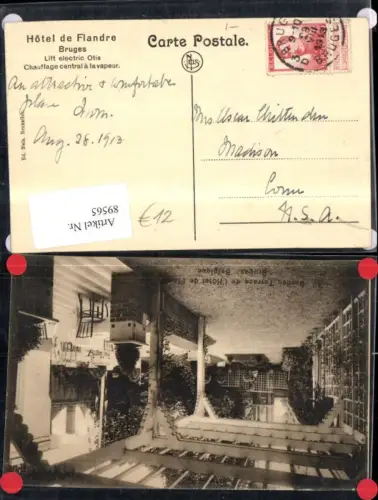 Hôtel de Flandre
Bruges
Lift electric Otis
Chauffage central à la vapeur.
Carte Postale.
An attractive & comfortable
place
Aug. 28. 1913
Mrs Oscar Crittenden
Madison
Conn
U.S.A.
Artikel Nr.
89565
€12
Garden Terrace de l'Hôtel de Flandre
Bruges. Belgique